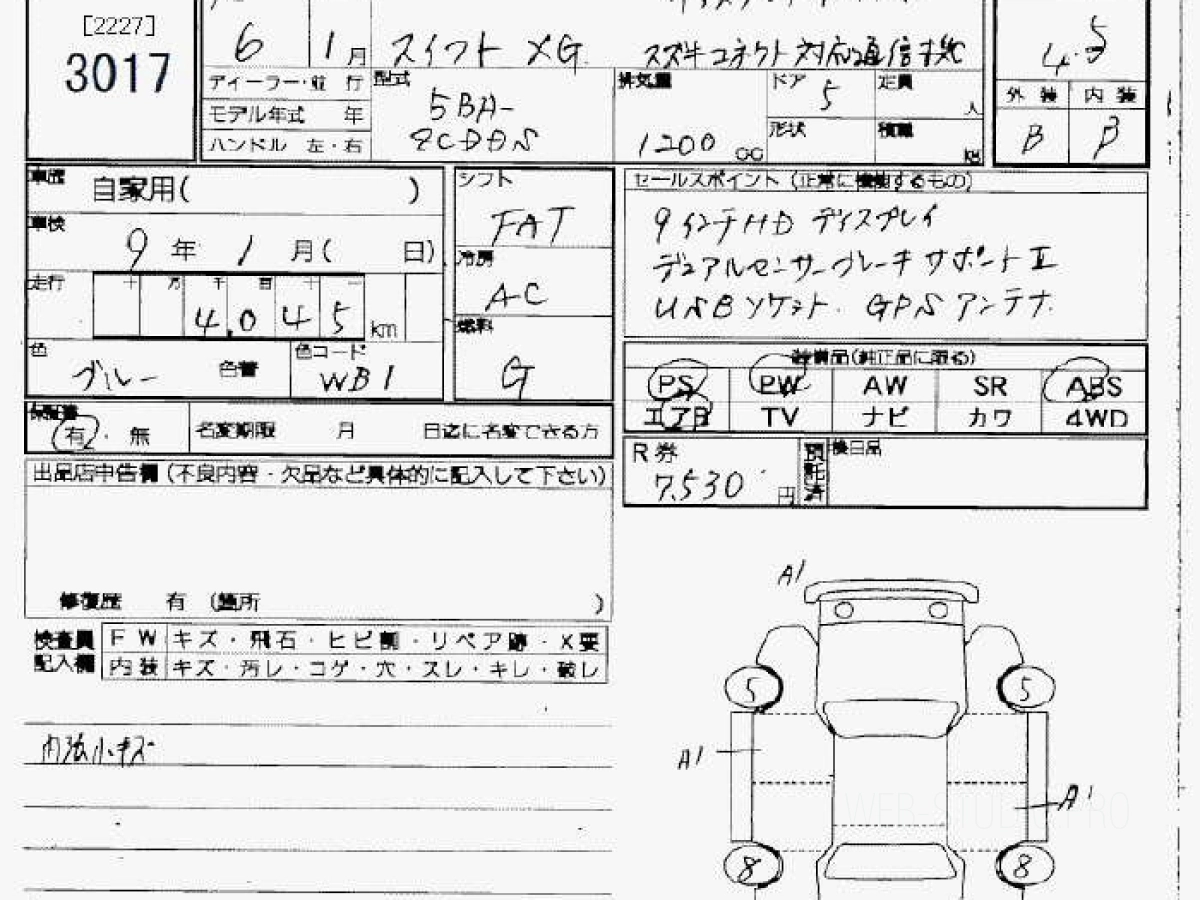 [2227]
3017
6 1月 スイフト XG スズキコネクト対応通信機
4.5
ディーラー・並行
モデル年式 年
ハンドル 左・右
型式 5BA-
ZCDDS
排気量 1200 cc
ドア 5
定員 人
形状
積載 kg
外装 内装
B B
車歴 自家用( )
車検 9年 1月( 日)
走行 十 万 千 百 十 一
4,045 km
色 ブルー 色替
色コード WB1
シフト FAT
冷房 AC
燃料 G
セールスポイント (正常に機能するもの)
9インチHD ディスプレイ
デュアルセンサーブレーキサポートⅡ
USBソケット. GPSアンテナ.
装備品(純正品に限る)
PS PW AW SR ABS
エアB TV ナビ カワ 4WD
保証書 有・無 名変期限 月 日迄に名変できる方
R券 7,530 円 預託済
後日品
出品店申告欄(不良内容・欠品など具体的に記入して下さい)
修復歴 有 (箇所 )
検査員記入欄
FW キズ・飛石・ヒビ割・リペア跡・X要
内装 キズ・汚レ・コゲ・穴・スレ・キレ・破レ
内張小キズ
A1
5 5
A1
A1
8 8
WEB STUDIO PRO